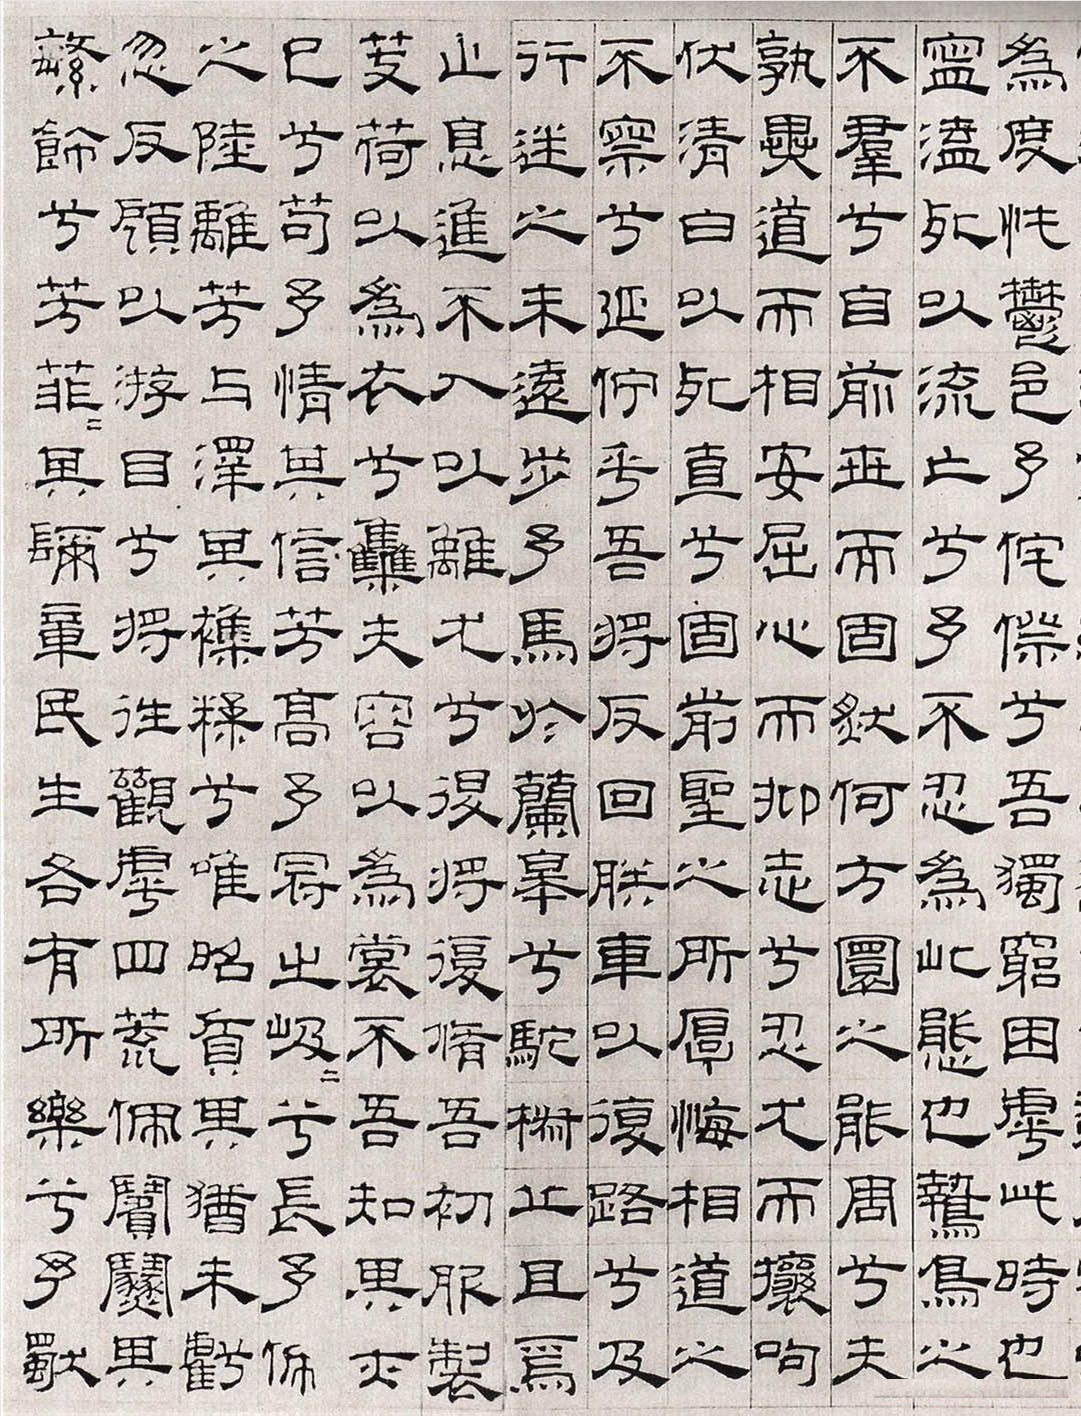 為度忳鬱邑予侘傺兮吾獨窮困虖此時也
寍溘死以流亡兮予不忍為此態也鷙鳥之
不羣兮自前世而固然何方圜之能周兮夫
孰異道而相安屈心而抑志兮忍尤而攘呴
伏清白以死直兮固前聖之所厚悔相道之
不察兮延佇乎吾將反回朕車以復路兮及
行迷之未遠步予馬於蘭皋兮馳椒丘且焉
止息進不入以離尤兮退將復脩吾初服製
芰荷以為衣兮雧夫容以為裳不吾知其亦
已兮苟予情其信芳高予冠之岌〻兮長予佩
之陸離芳与澤其襍糅兮唯昭質其猶未虧
忽反顧以游目兮將往觀虖四荒佩繽紛其
繁飾兮芳菲〻其彌章民生各有所樂兮予獨